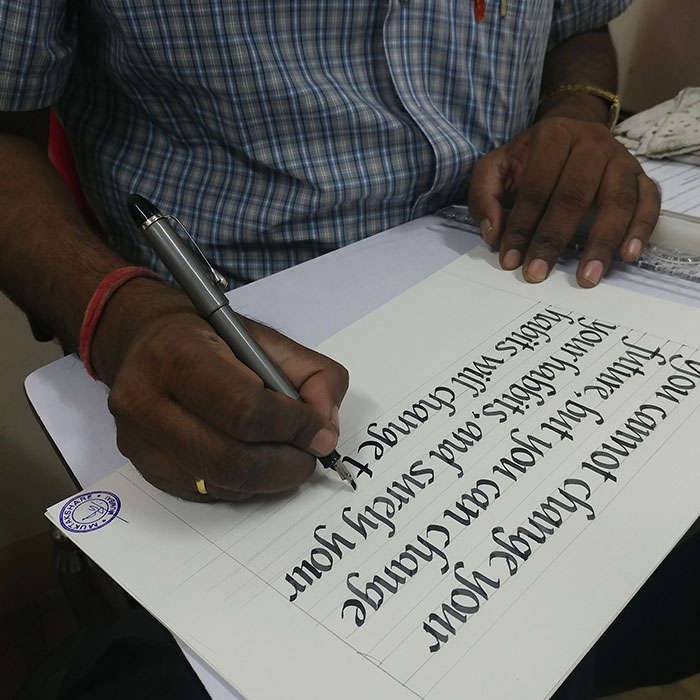 you cannot change your
future, but you can change
your habbits, and surely your
habits will change t
MUKTAKSHARE